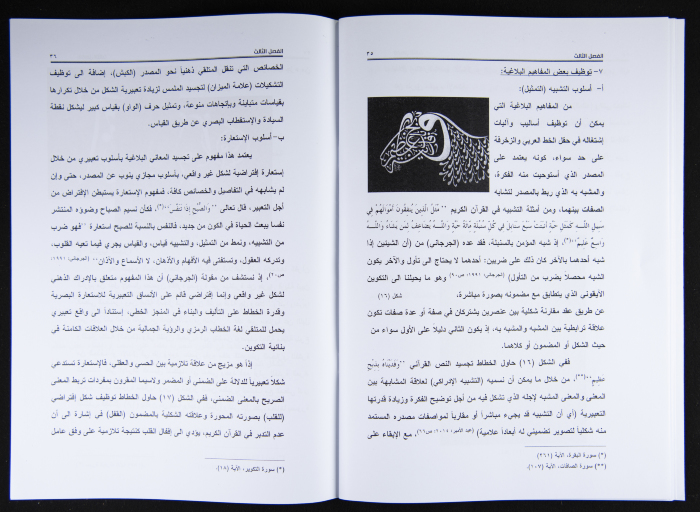 الفصل الثالث
٣٥
٧- توظيف بعض المفاهيم البلاغية:
أ- أسلوب التشبيه (التمثيل):
من المفاهيم البلاغية التي
يمكن أن توظيف أساليب وآليات
إشتغاله في حقل الخط العربي والزخرفة
على حد سواء، كونه يعتمد على
المصدر الذي أستوحيت منه الفكرة،
والمشبه به الذي ربط بالمصدر لتشابه
الصفات بينهما، ومن أمثلة التشبيه في القرآن الكريم "مَّثَلُ الَّذِينَ يُنفِقُونَ أَمْوَالَهُمْ فِي
سَبِيلِ اللَّهِ كَمَثَلِ حَبَّةٍ أَنبَتَتْ سَبْعَ سَنَابِلَ فِي كُلِّ سُنبُلَةٍ مِّائَةُ حَبَّةٍ وَاللَّهُ يُضَاعِفُ لِمَن يَشَاءُ وَاللَّهُ
وَاسِعٌ عَلِيمٌ"(*)، إذ شبه المؤمن بالسنبلة، فقد عده (الجرجاني) من (أن الشيئين إذا
شبه أحدهما بالآخر كان ذلك على ضربين: أحدهما لا يحتاج الى تأول والآخر يكون
الشبه محصلا بضرب من التأول) (الجرجاني، ١٩٩١، ص٩٠) وهو ما يحيلنا الى التكوين
الأيقوني الذي يتطابق مع مضمونه بصورة مباشرة،
شكل (١٦)
عن طريق عقد مقارنة شكلية بين عنصرين يشتركان في صفة أو عدة صفات تكون
علاقة ترابطية بين المشبه والمشبه به، إذ يكون الثاني دليلا على الأول سواء من
حيث الشكل أو المضمون أو كلاهما.
ففي الشكل (١٦) حاول الخطاط تجسيد النص القرآني "وَفَدَيْنَاهُ بِذِبْحٍ
عَظِيمٍ"(**)، من خلال ما يمكن أن نسميه (التشبيه الإدراكي) لعلاقة المشابهة بين
المعنى والمعنى المشبه لإجله الذي تشكل فيه من أجل توضيح الفكرة وزيادة قدرتها
التعبيرية (أي أن التشبيه قد يجيء مباشراً أو مقارباً لمواصفات مصدره المستمد
منه شكلياً لتصوير تضميني له أبعاداً علامية) ، مع الإبقاء على
(*) سورة البقرة، الآية (٢٦١)
(**) سورة الصافات، الآية (١٠٧).
الفصل الثالث
٣٦
الخصائص التي تنقل المتلقي ذهنياً نحو المصدر (الكبش)، إضافة الى توظيف
التشكيلات (علامة الميزان) لتجسيد الملمس لزيادة تعبيرية الشكل من خلال تكرارها
بقياسات متباينة وبإتجاهات منوعة، وتمثيل حرف (الواو) بقياس كبير ليشكل نقطة
السيادة والإستقطاب البصري عن طريق القياس.
ب- أسلوب الإستعارة:
يعتمد هذا مفهوم على تجسيد المعاني البلاغية بأسلوب تعبيري من خلال
إستعارة إفتراضية لشكل غير واقعي، بأسلوب مجازي ينوب عن المصدر، حتى وإن
لم يشابهه في التفاصيل والخصائص كافة، فمفهوم الإستعارة يستبطن الإفتراض من
أجل التعبير، قال تعالى "وَالصُّبْحِ إِذَا تَنَفَّسَ"(*)، فكأن نسيم الصباح وضوؤه المنتشر
نفسا يبعث الحياة في الكون من جديد، فالتنفس بالنسبة للصبح استعارة "فهو ضرب
من التشبيه، ونمط من التمثيل، والتشبيه قياس، والقياس يجري فيما تعيه القلوب،
وتدركه العقول، وتستفتى فيه الأفهام والأذهان، لا الأسماع والآذان" (الجرجاني، ١٩٩١،
، إذ نستشف من مقولة (الجرجاني) أن هذا المفهوم متعلق بالإدراك الذهني
لشكل غير واقعي وإنما إفتراضي قائم على الأنساق التعبيرية للاستعارة البصرية
وقدرة الخطاط على التأليف والبناء في المنجز الخطي، إستنادا الى واقع تعبيري
يحمل للمتلقي لغة الخطاب الرمزي والرؤية الجمالية من خلال العلاقات الكامنة في
بنائية التكوين.
إذاً هو مزيج من علاقة تلازمية بين الحسي والعقلي، فالإستعارة تستدعي
شكلاً تعبيرياً للدلالة على الضمني أو المضمر ولاسيما المقرون بمفردات تربط المعنى
الصريح بالمعنى الضمني، ففي الشكل (١٧) حاول الخطاط توظيف شكل إفتراضي
(للقلب) بصورته المحورة وعلاقته الشكلية بالمضمون (القفل) في إشارة الى أن
عدم التدبر في القرآن الكريم، يؤدي الى إقفال القلب كنتيجة تلازمية على وفق عامل
(*) سورة التكوير، الآية (١٨).